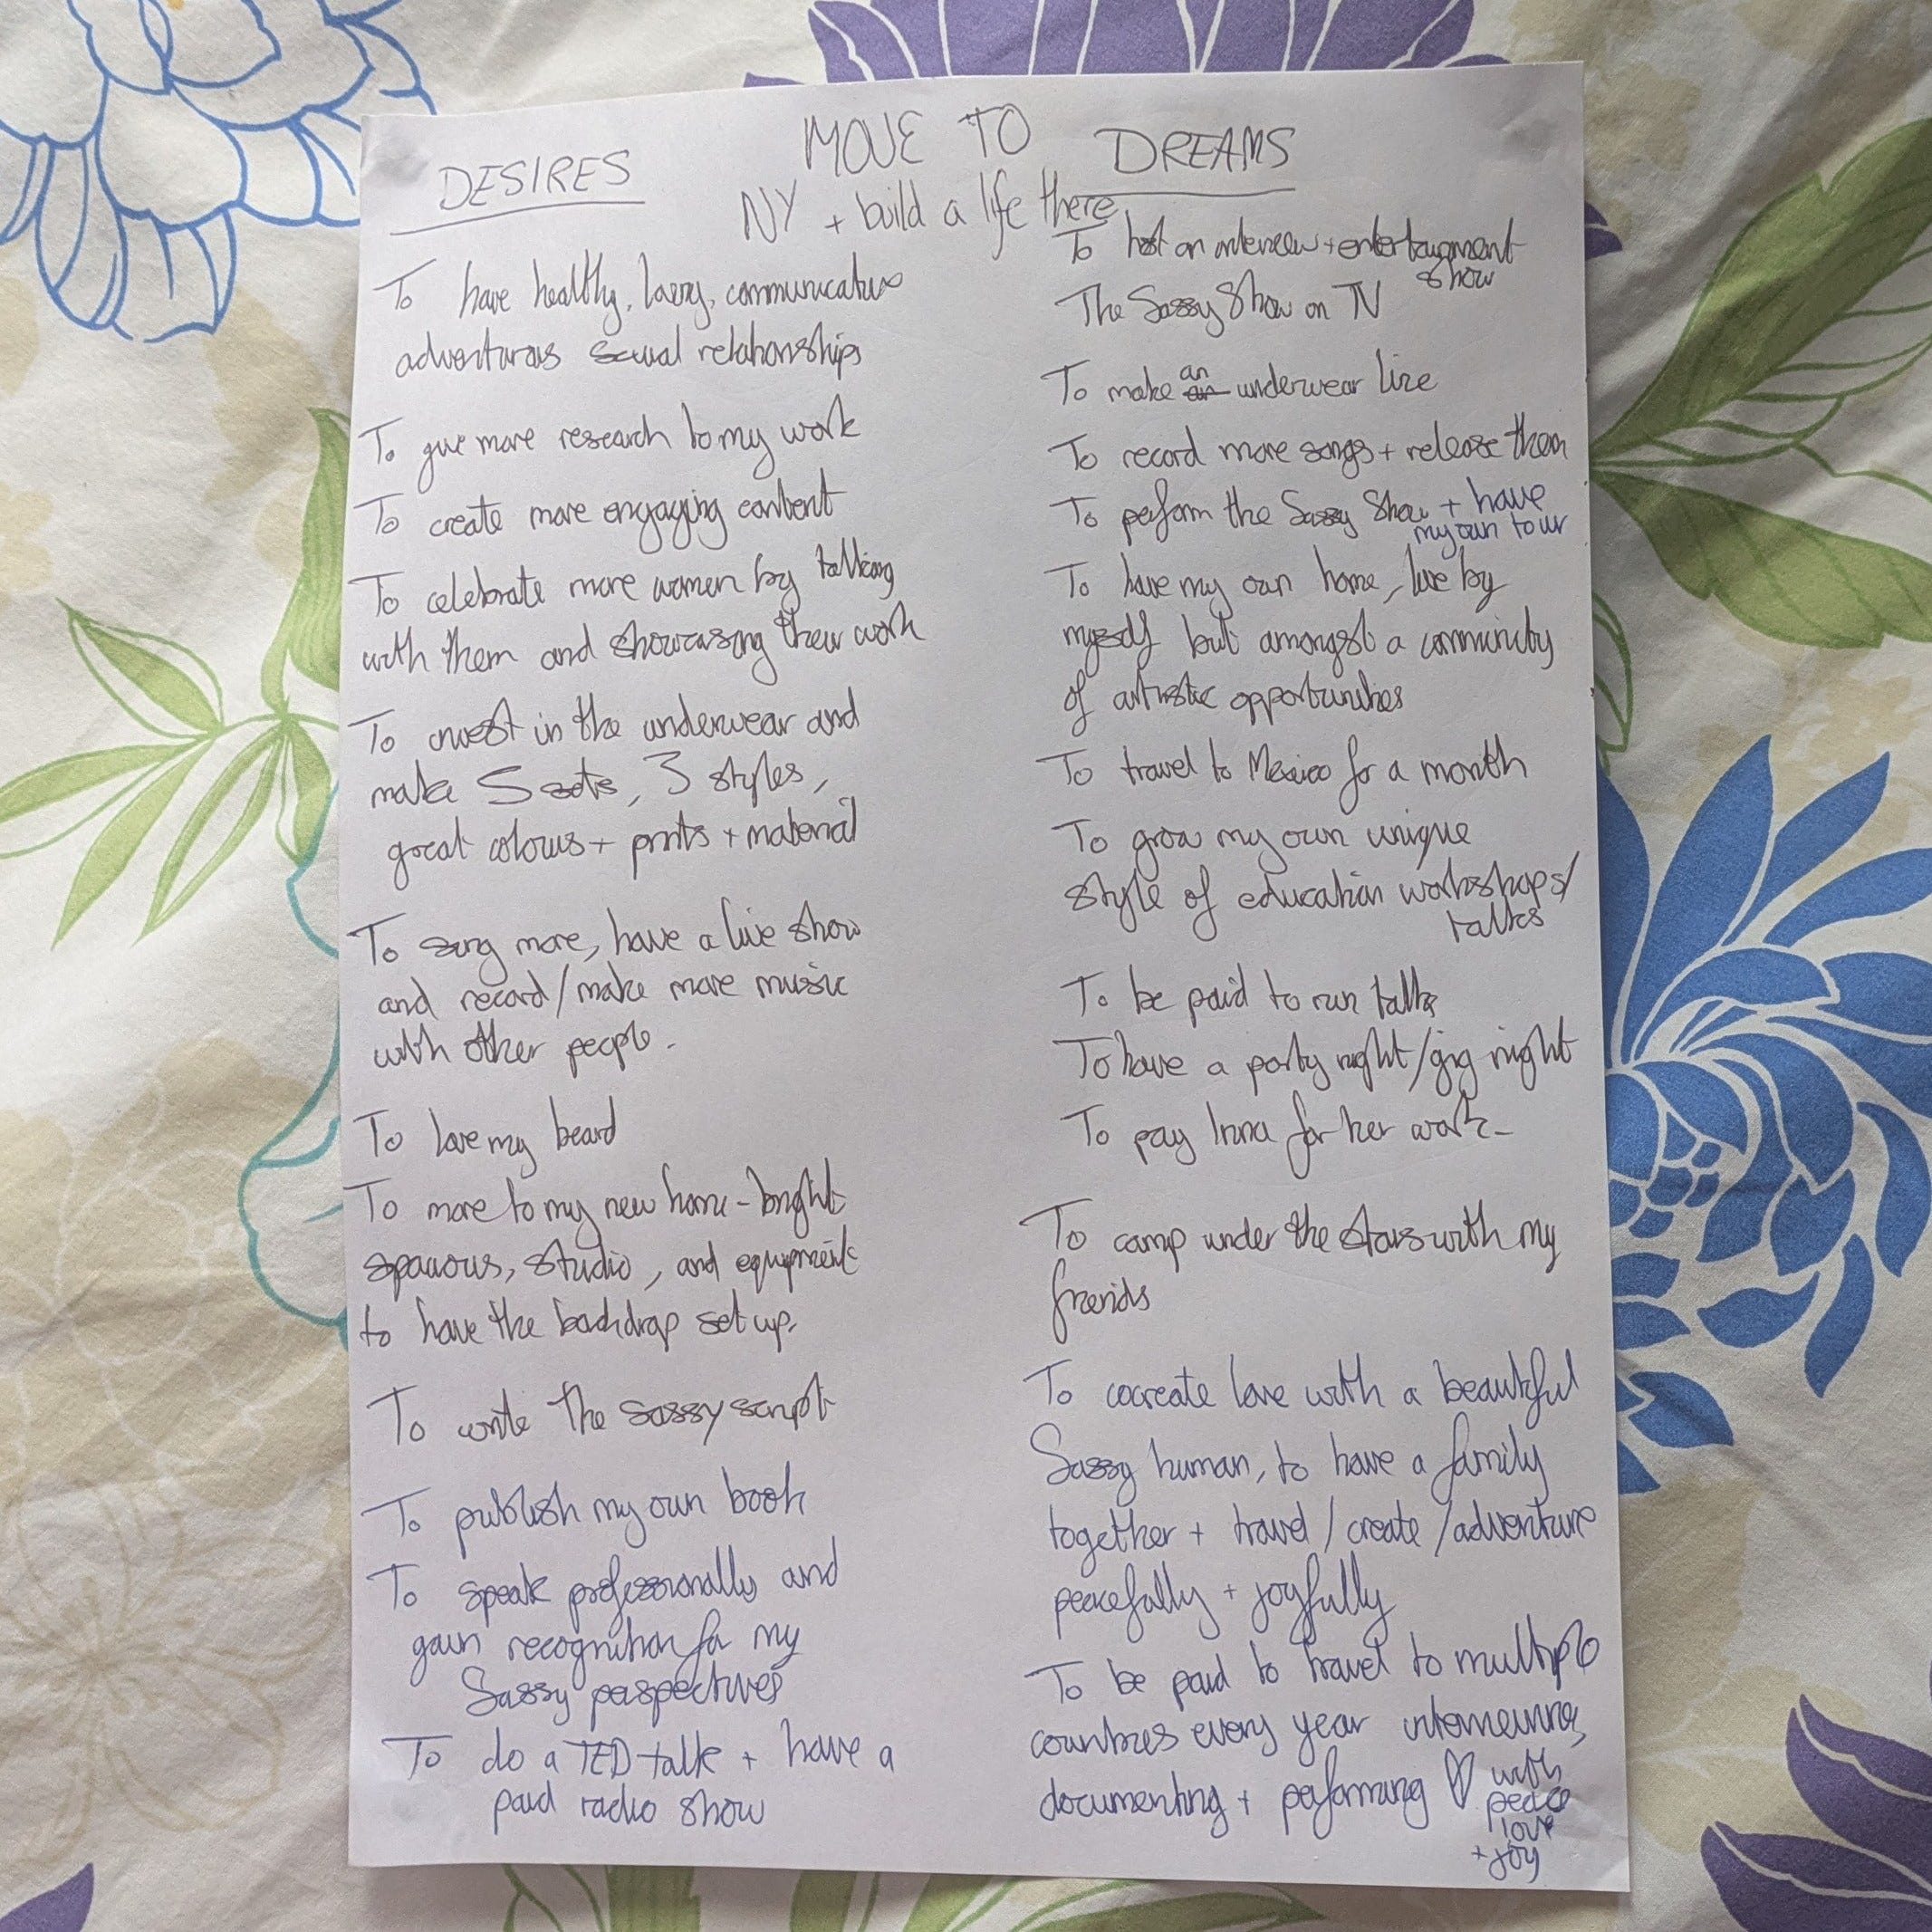 MOVE TO
NY + build a life there
DESIRES
To have healthy, loving, communicative
adventurous sexual relationships
To give more research to my work
To create more engaging content
To celebrate more women by talking
with them and showcasing their work
To invest in the underwear and
make 5 sets, 3 styles,
great colours + prints + material
To sing more, have a live show
and record/make more music
with other people.
To love my beard
To move to my new home - bright
spacious, studio, and equipment
to have the backdrop set up.
To write The Sassy script
To publish my own book
To speak professionally and
gain recognition for my
Sassy perspectives
To do a TED talk + have a
paid radio show
DREAMS
To host an interview + entertainment
show
The Sassy Show on TV
To make an underwear line
To record more songs + release them
To perform the Sassy Show + have
my own tour
To have my own home, live by
myself but amongst a community
of artistic opportunities
To travel to Mexico for a month
To grow my own unique
style of education workshops/
talks
To be paid to run talks
To have a party night/gig night
To pay Inna for her work-
To camp under the stars with my
friends
To cocreate love with a beautiful
Sassy human, to have a family
together + travel / create / adventure
peacefully + joyfully
To be paid to travel to multiple
countries every year interviewing,
documenting + performing ♡ with
peace
love
+ joy